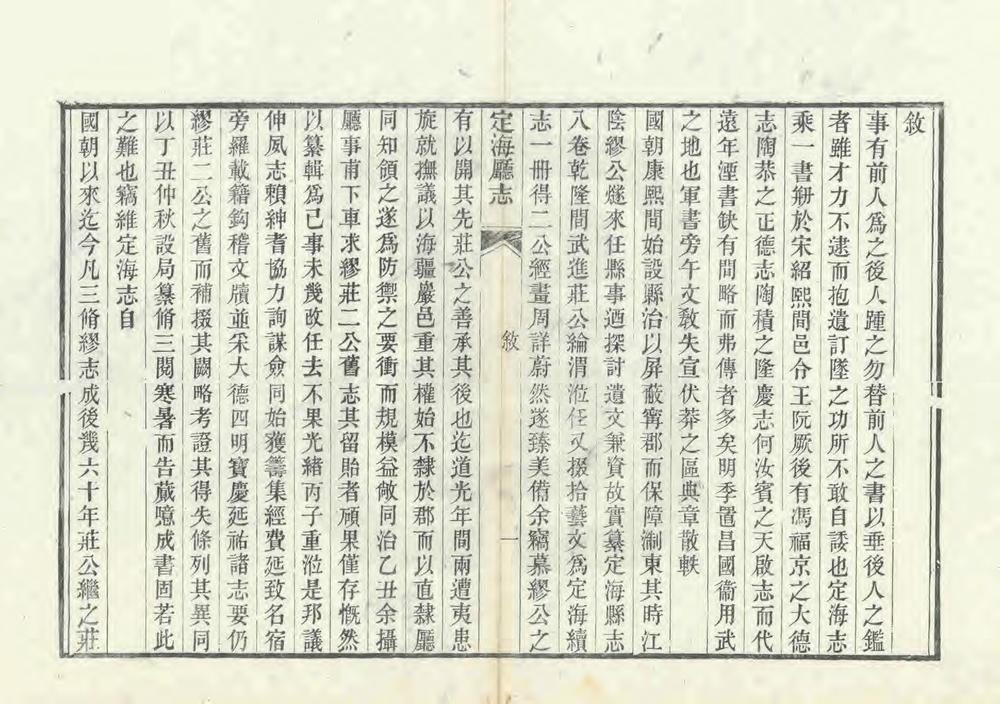 敘
事有前人爲之後人踵之勿替前人之書以垂後人之鑑
者雖才力不逮而抱遺訂墜之功所不敢自諉也定海志
乘一書刱於宋紹熙間邑令王阮厥後有馮福京之大德
志陶恭之正德志陶積之隆慶志何汝賓之天啟志而代
遠年湮書缺有間略而弗傳者多矣明季置昌國衞用武
之地也軍書旁午文敎失宣伏莽之區典章散軼
國朝康熙間始設縣治以屏蔽甯郡而保障淛東其時江
陰繆公燧來任縣事迺探討遺文兼資故實纂定海縣志
八卷乾隆間武進莊公綸渭涖任又掇拾藝文爲定海續
志一冊得二公經畫周詳蔚然遂臻美備余竊慕繆公之
定海廳志
敘
一
有以開其先莊公之善承其後也迄道光年間兩遭夷患
旋就撫議以海疆巖邑重其權始不隸於郡而以直隸廳
同知領之遂爲防禦之要衝而規模益敞同治乙丑余攝
廳事甫下車求繆莊二公舊志其留貽者頎果僅存慨然
以纂輯爲已事未幾改任去不果光緒丙子重涖是邦議
伸夙志賴紳耆協力詢謀僉同始獲籌集經費延致名宿
旁羅載籍鈎稽文牘並采大德四明寶慶延祐諸志要仍
繆莊二公之舊而補掇其闕略考證其得失條列其異同
以丁丑仲秋設局纂脩三閱寒暑而告蕆噫成書固若此
之難也竊維定海志自
國朝以來迄今凡三脩繆志成後幾六十年莊公繼之莊